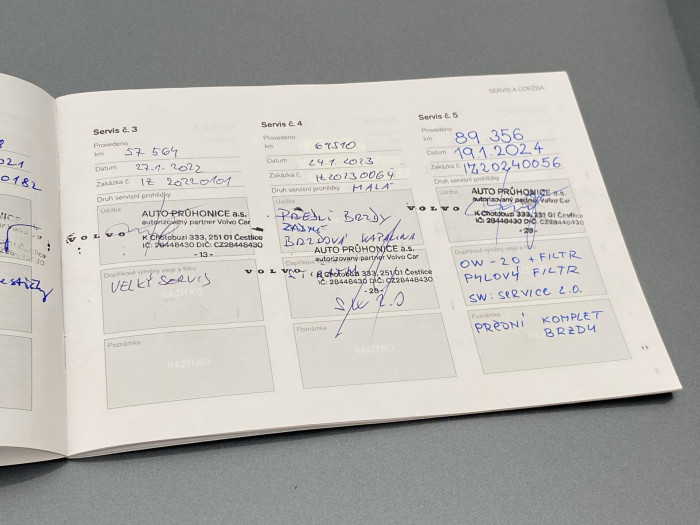 SERVIS A ÚDRŽBA
21
0182
Servis č. 3
Provedeno
km 57 564
Datum 27.1. 2022
Zakázka č. IZ 20220101
Druh servisní prohlídky
Údržba
AUTO PRŮHONICE a.s.
autorizovaný partner Volvo Car
VOLVO
K Chotobuzi 333, 251 01 Čestlice
IČ: 28448430 DIČ: CZ28448430
- 13 -
Doplňkové výměny oleje a filtru
VELKÝ SERVIS
Poznámka
RAZÍTKO
Servis č. 4
Provedeno
km 69510
Datum 24.1. 2023
Zakázka č. IZ20230064
Druh servisní prohlídky MALÁ
Údržba
PŘEDNÍ BRZDY
ZADNÍ
BRZDOVÁ KAPALINA
AUTO PRŮHONICE a.s.
autorizovaný partner Volvo Car
VOLVO
K Chotobuzi 333, 251 01 Čestlice
IČ: 28448430 DIČ: CZ28448430
- 28 -
SW 2.0
Poznámka
RAZÍTKO
Servis č. 5
Provedeno
km 89 356
Datum 19.1.2024
Zakázka č. IZ20240056
Druh servisní prohlídky
Údržba
AUTO PRŮHONICE a.s.
autorizovaný partner Volvo Car
VOLVO
K Chotobuzi 333, 251 01 Čestlice
IČ: 28448430 DIČ: CZ28448430
- 28 -
Doplňkové výměny oleje a filtru
OW - 20 + FILTR
PYLOVÝ FILTR
SW: SERVICE 2.0.
Poznámka
PŘEDNÍ KOMPLET
BRZDY